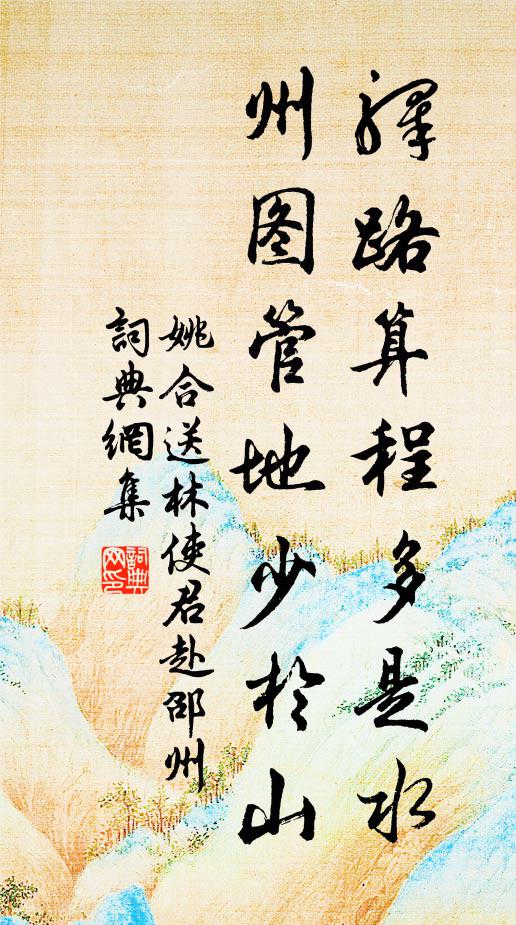 驛路算程多是水
州图管地少於山
姚合送林使君赴邵州
詞典網集
詞典网印